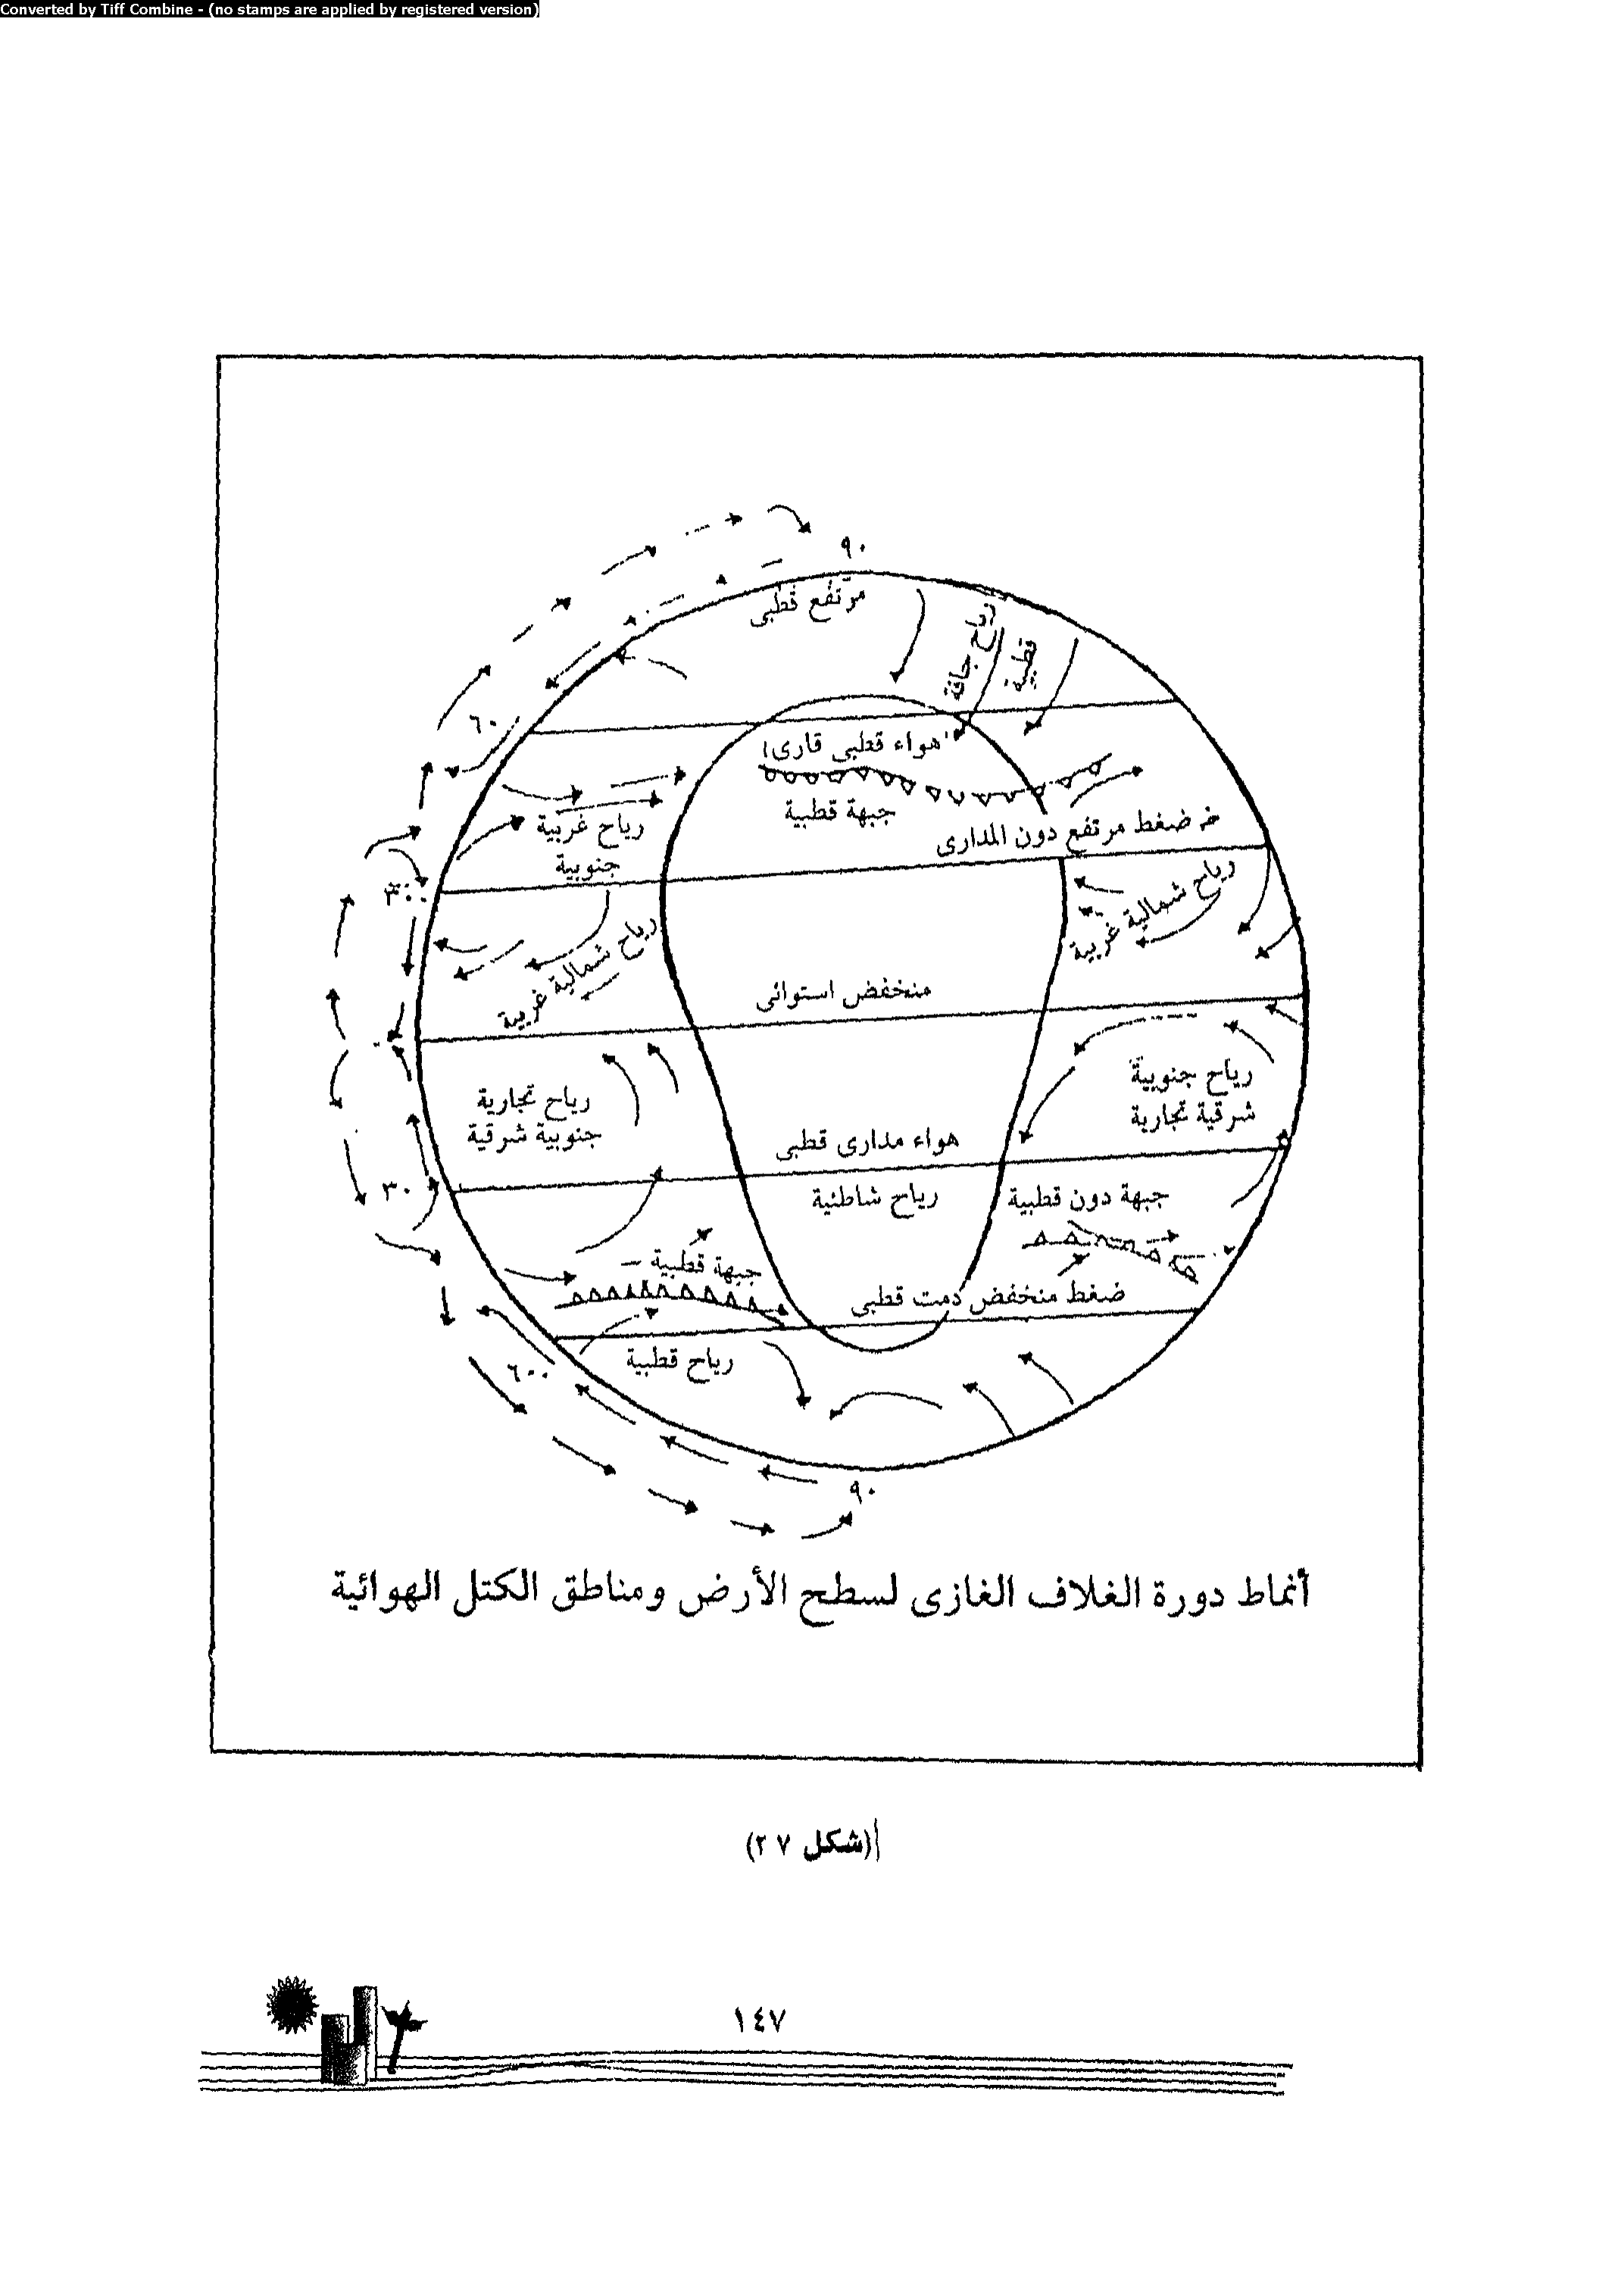 Converted by Tiff Combine - (no stamps are applied by registered version)
٩٠
مرتفع قطبى
رياح جافة
قطبية
٦٠
هواء قطبى قارى
جبهة قطبية
رياح غربية
جنوبية
ضغط مرتفع دون المدارى
٣٠
رياح شمالية غربية
رياح شمالية غربية
منخفض استوائى
٠
رياح جنوبية
شرقية تجارية
رياح تجارية
جنوبية شرقية
هواء مدارى قطبى
٣٠
رياح شاطئية
جبهة دون قطبية
جبهة قطبية
ضغط منخفض دمت قطبى
رياح قطبية
٦٠
٩٠
أنماط دورة الغلاف الغازى لسطح الأرض ومناطق الكتل الهوائية
(شكل ٢٧)
١٤٧